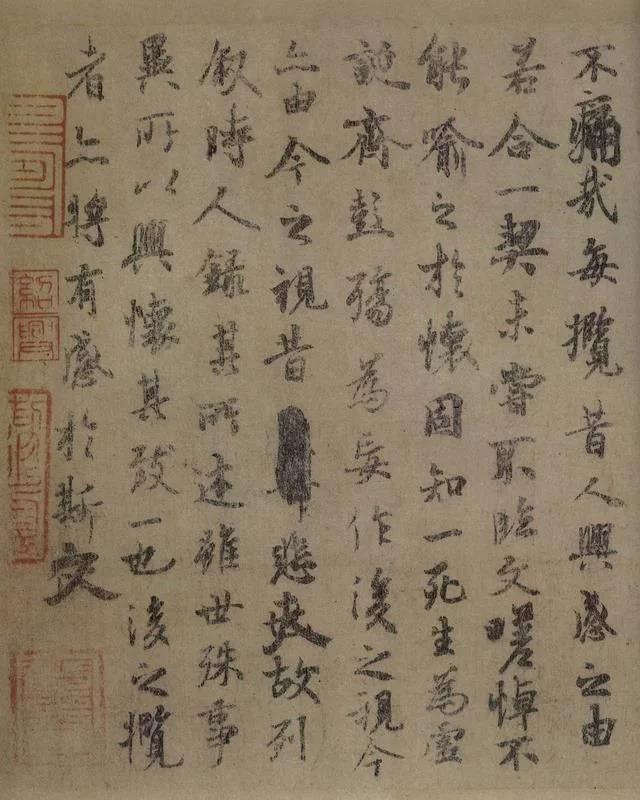 不痛哉每攬昔人興感之由
若合一契未嘗不臨文嗟悼不
能喻之於懷固知一死生為虛
誕齊彭殤為妄作後之視今
亦由今之視昔悲夫故列
敘時人錄其所述雖世殊事
異所以興懷其致一也後之攬
者亦將有感於斯文
紹興